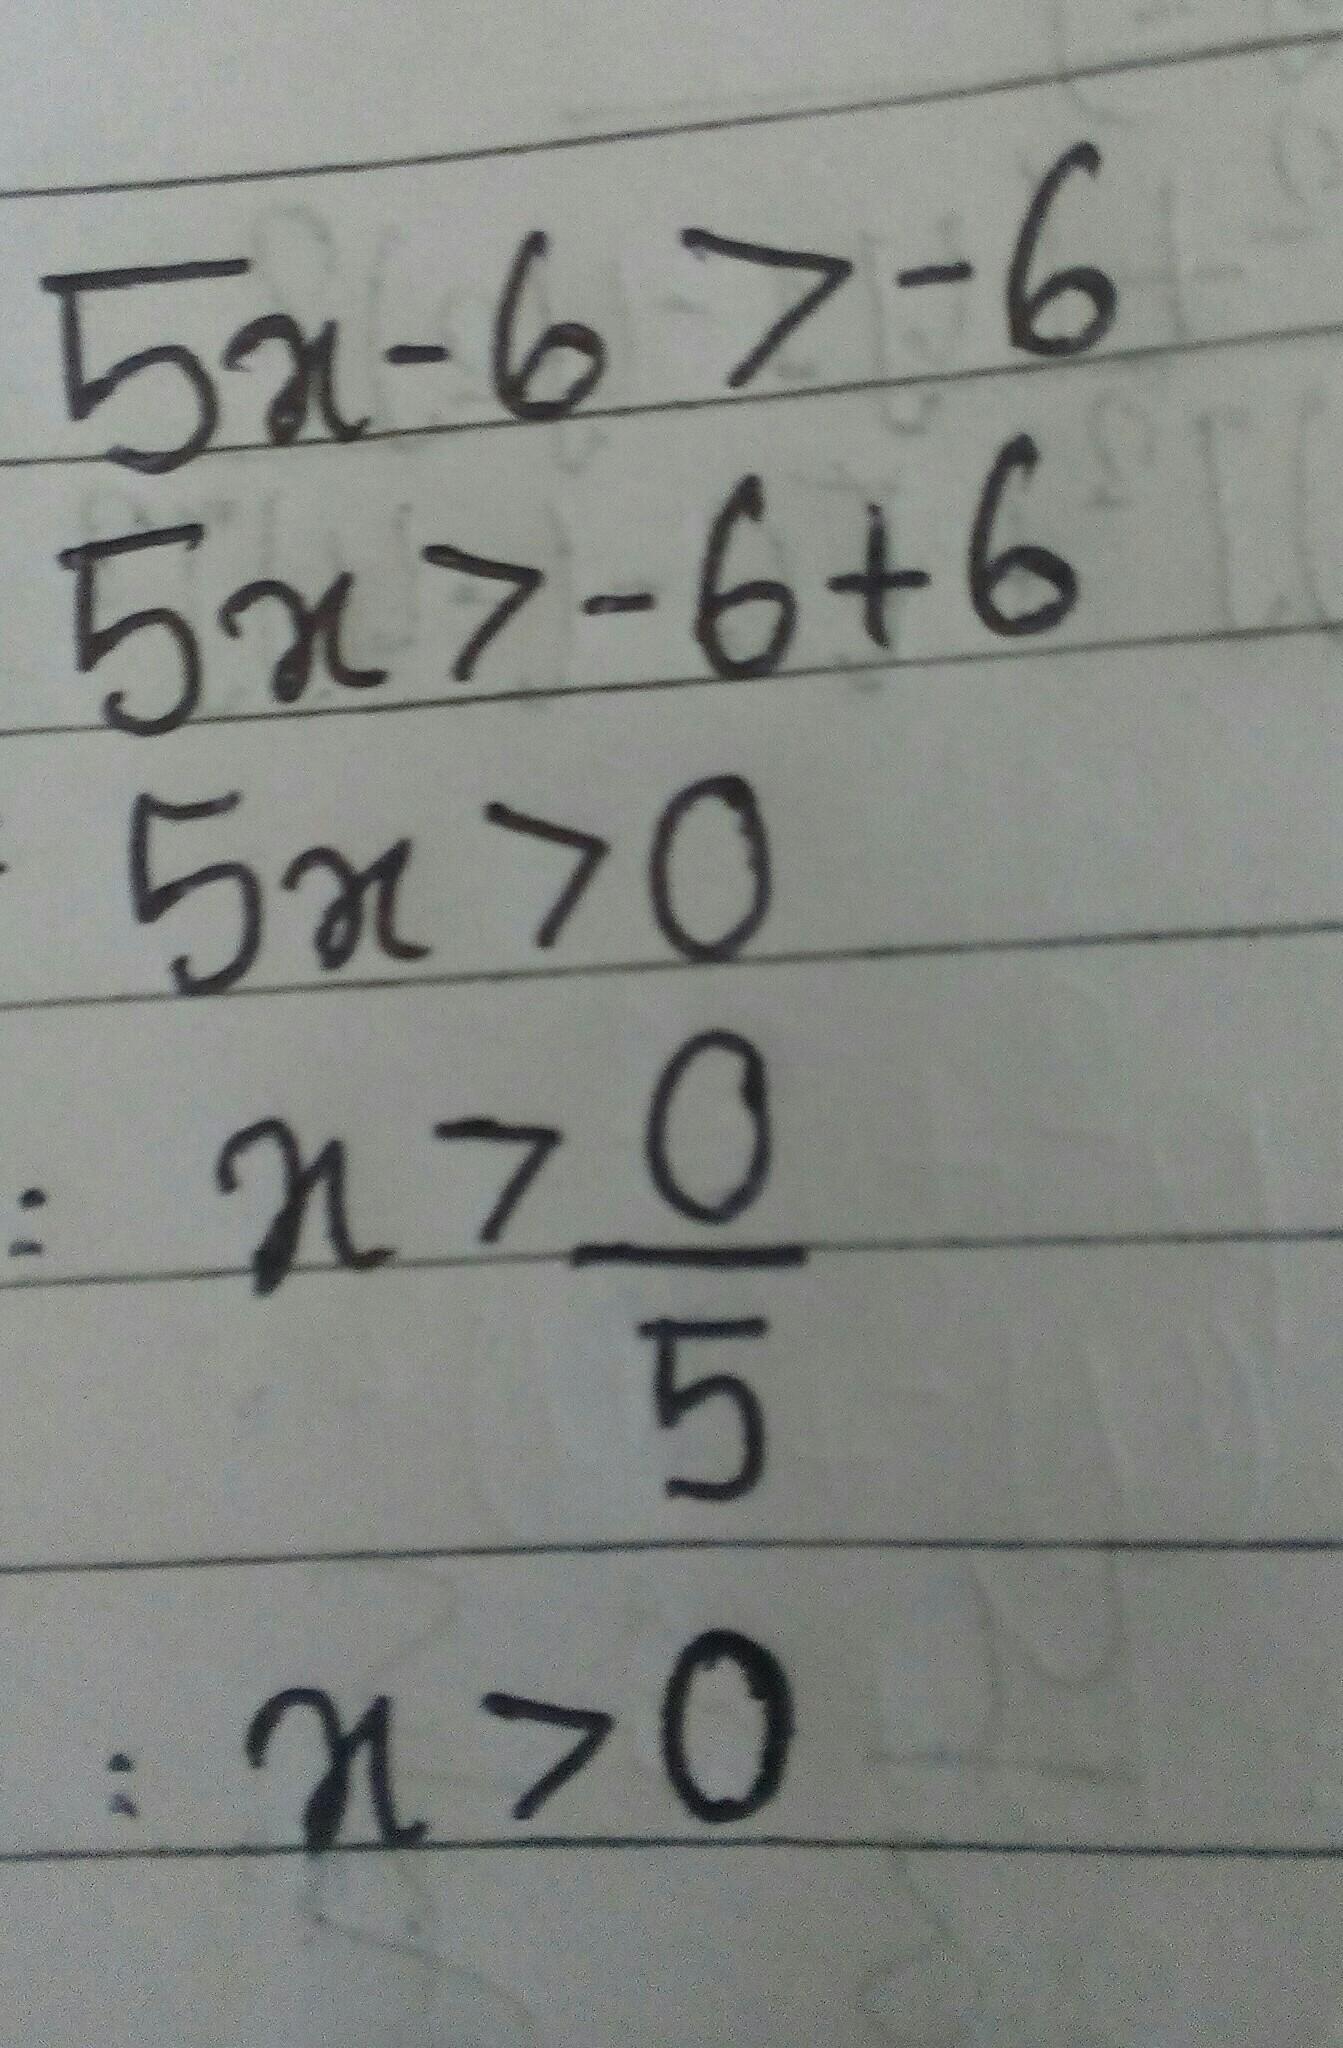 5x-6>-6
5x>-6+6
5x>0
: x>0/5
: x>0